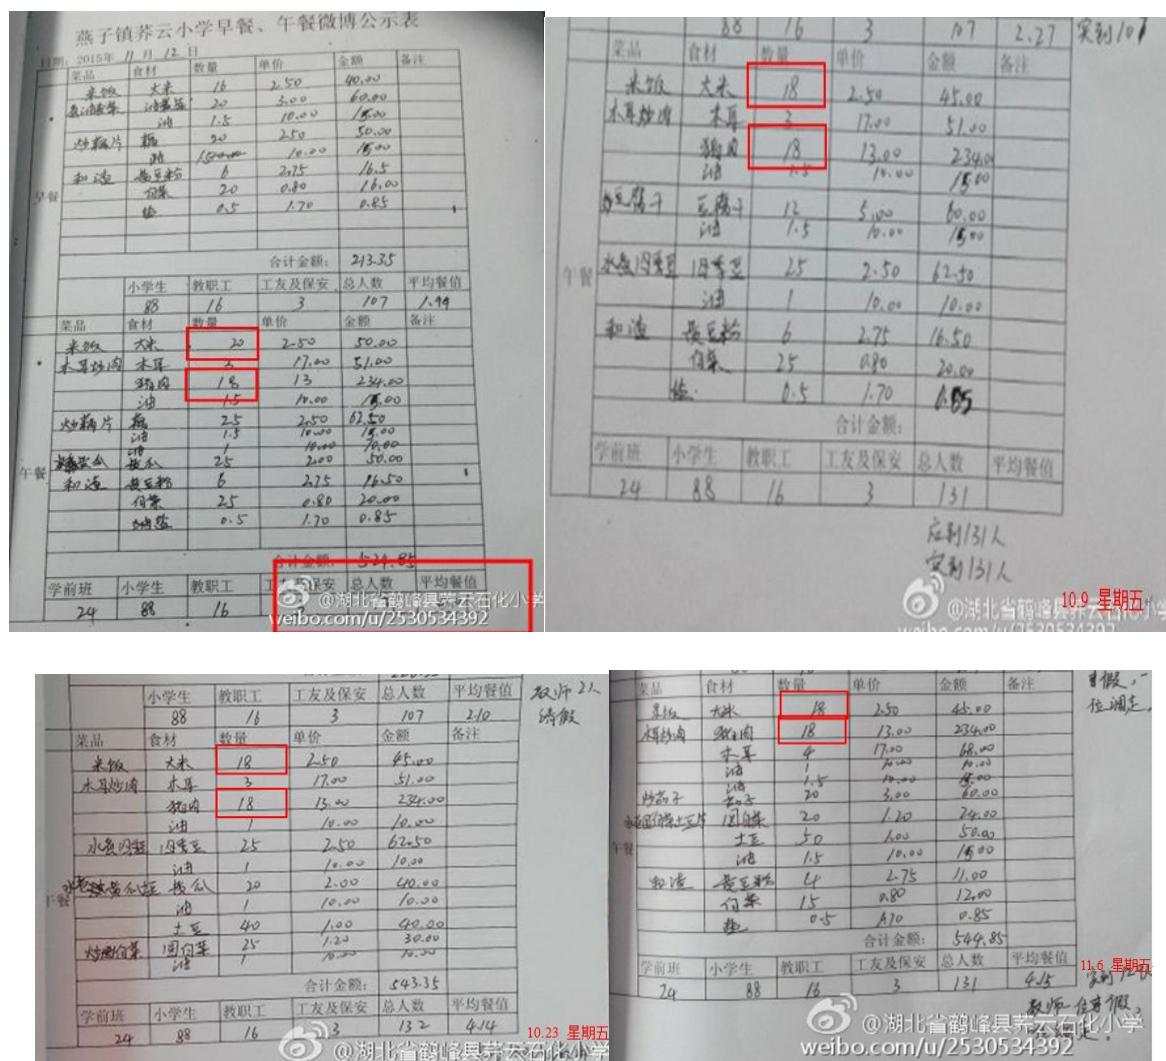 燕子镇荞云小学早餐、午餐微博公示表
日期：2015年 11 月 12 日
菜品 食材 数量 单价 金额 备注
米饭 大米 16 2.50 40.00
20 3.00 60.00
油 1.5 10.00 15.00
炒藕片 藕 20 2.50 50.00
油 10.00 15.00
早餐 和渣 黄豆粉 6 2.75 16.5
白菜 20 0.80 16.00
盐 0.5 1.70 0.85
合计金额： 213.35
小学生 教职工 工友及保安 总人数 平均餐值
88 16 3 107 1.99
菜品 食材 数量 单价 金额 备注
米饭 大米 20 2.50 50.00
木耳炒肉 木耳 3 17.00 51.00
猪肉 18 13 234.00
油 1.5 10.00 15.00
炒藕片 藕 25 2.50 62.50
油 1.5 10.00 15.00
油 1 10.00 10.00
黄瓜 25 2.00 50.00
午餐 和渣 黄豆粉 6 2.75 16.50
白菜 25 0.80 20.00
盐 0.5 1.70 0.85
合计金额： 524.85
学前班 小学生 教职工 工友及保安 总人数 平均餐值
24 88 16
@湖北省鹤峰县荞云石化小学
weibo.com/u/2530534392
88 16 3 107 2.27 实到107
菜品 食材 数量 单价 金额 备注
米饭 大米 18 2.50 45.00
木耳炒肉 木耳 3 17.00 51.00
猪肉 18 13.00 234.00
油 1.5 10.00 15.00
豆腐子 12 5.00 60.00
油 1.5 10.00 15.00
午餐 水煮四季豆 四季豆 25 2.50 62.50
油 1 10.00 10.00
和渣 黄豆粉 6 2.75 16.50
白菜 25 0.80 20.00
盐 0.5 1.70 0.85
合计金额：
学前班 小学生 教职工 工友及保安 总人数 平均餐值
24 88 16 3 131
应到131人
实到131人
10.9 星期五
@湖北省鹤峰县荞云石化小学
weibo.com/u/2530534392
小学生 教职工 工友及保安 总人数 平均餐值 教师2人
88 16 3 107 2.10 请假
菜品 食材 数量 单价 金额 备注
米饭 大米 18 2.50 45.00
木耳炒肉 木耳 3 17.00 51.00
猪肉 18 13.00 234.00
油 1 10.00 10.00
四季豆 25 2.50 62.50
油 1 10.00 10.00
午餐 黄瓜 20 2.00 40.00
油 1 10.00 10.00
土豆 40 1.00 40.00
圆白菜 25 1.20 30.00
油 1 10.00 10.00
合计金额： 543.35
学前班 小学生 教职工 工友及保安 总人数 平均餐值
24 88 16 3 132 4.14
10.23 星期五
@湖北省鹤峰县荞云石化小学
菜品 食材 数量 单价 金额 备注
米饭 大米 18 2.50 45.00
木耳炒肉 猪肉 18 13.00 234.00
木耳 4 17.00 68.00
油 1 10.00 10.00
油 1.5 10.00 15.00
炒茄子 茄子 20 3.00 60.00
圆白菜 20 1.20 24.00
午餐 土豆 50 1.00 50.00
油 1.5 10.00 15.00
和渣 黄豆粉 4 2.75 11.00
白菜 15 0.80 12.00
盐 0.5 1.70 0.85
合计金额： 544.85
学前班 小学生 教职工 工友及保安 总人数 平均餐值
24 88 16 3 131 4.15
11.6 星期五
@湖北省鹤峰县荞云石化小学
weibo.com/u/2530534392